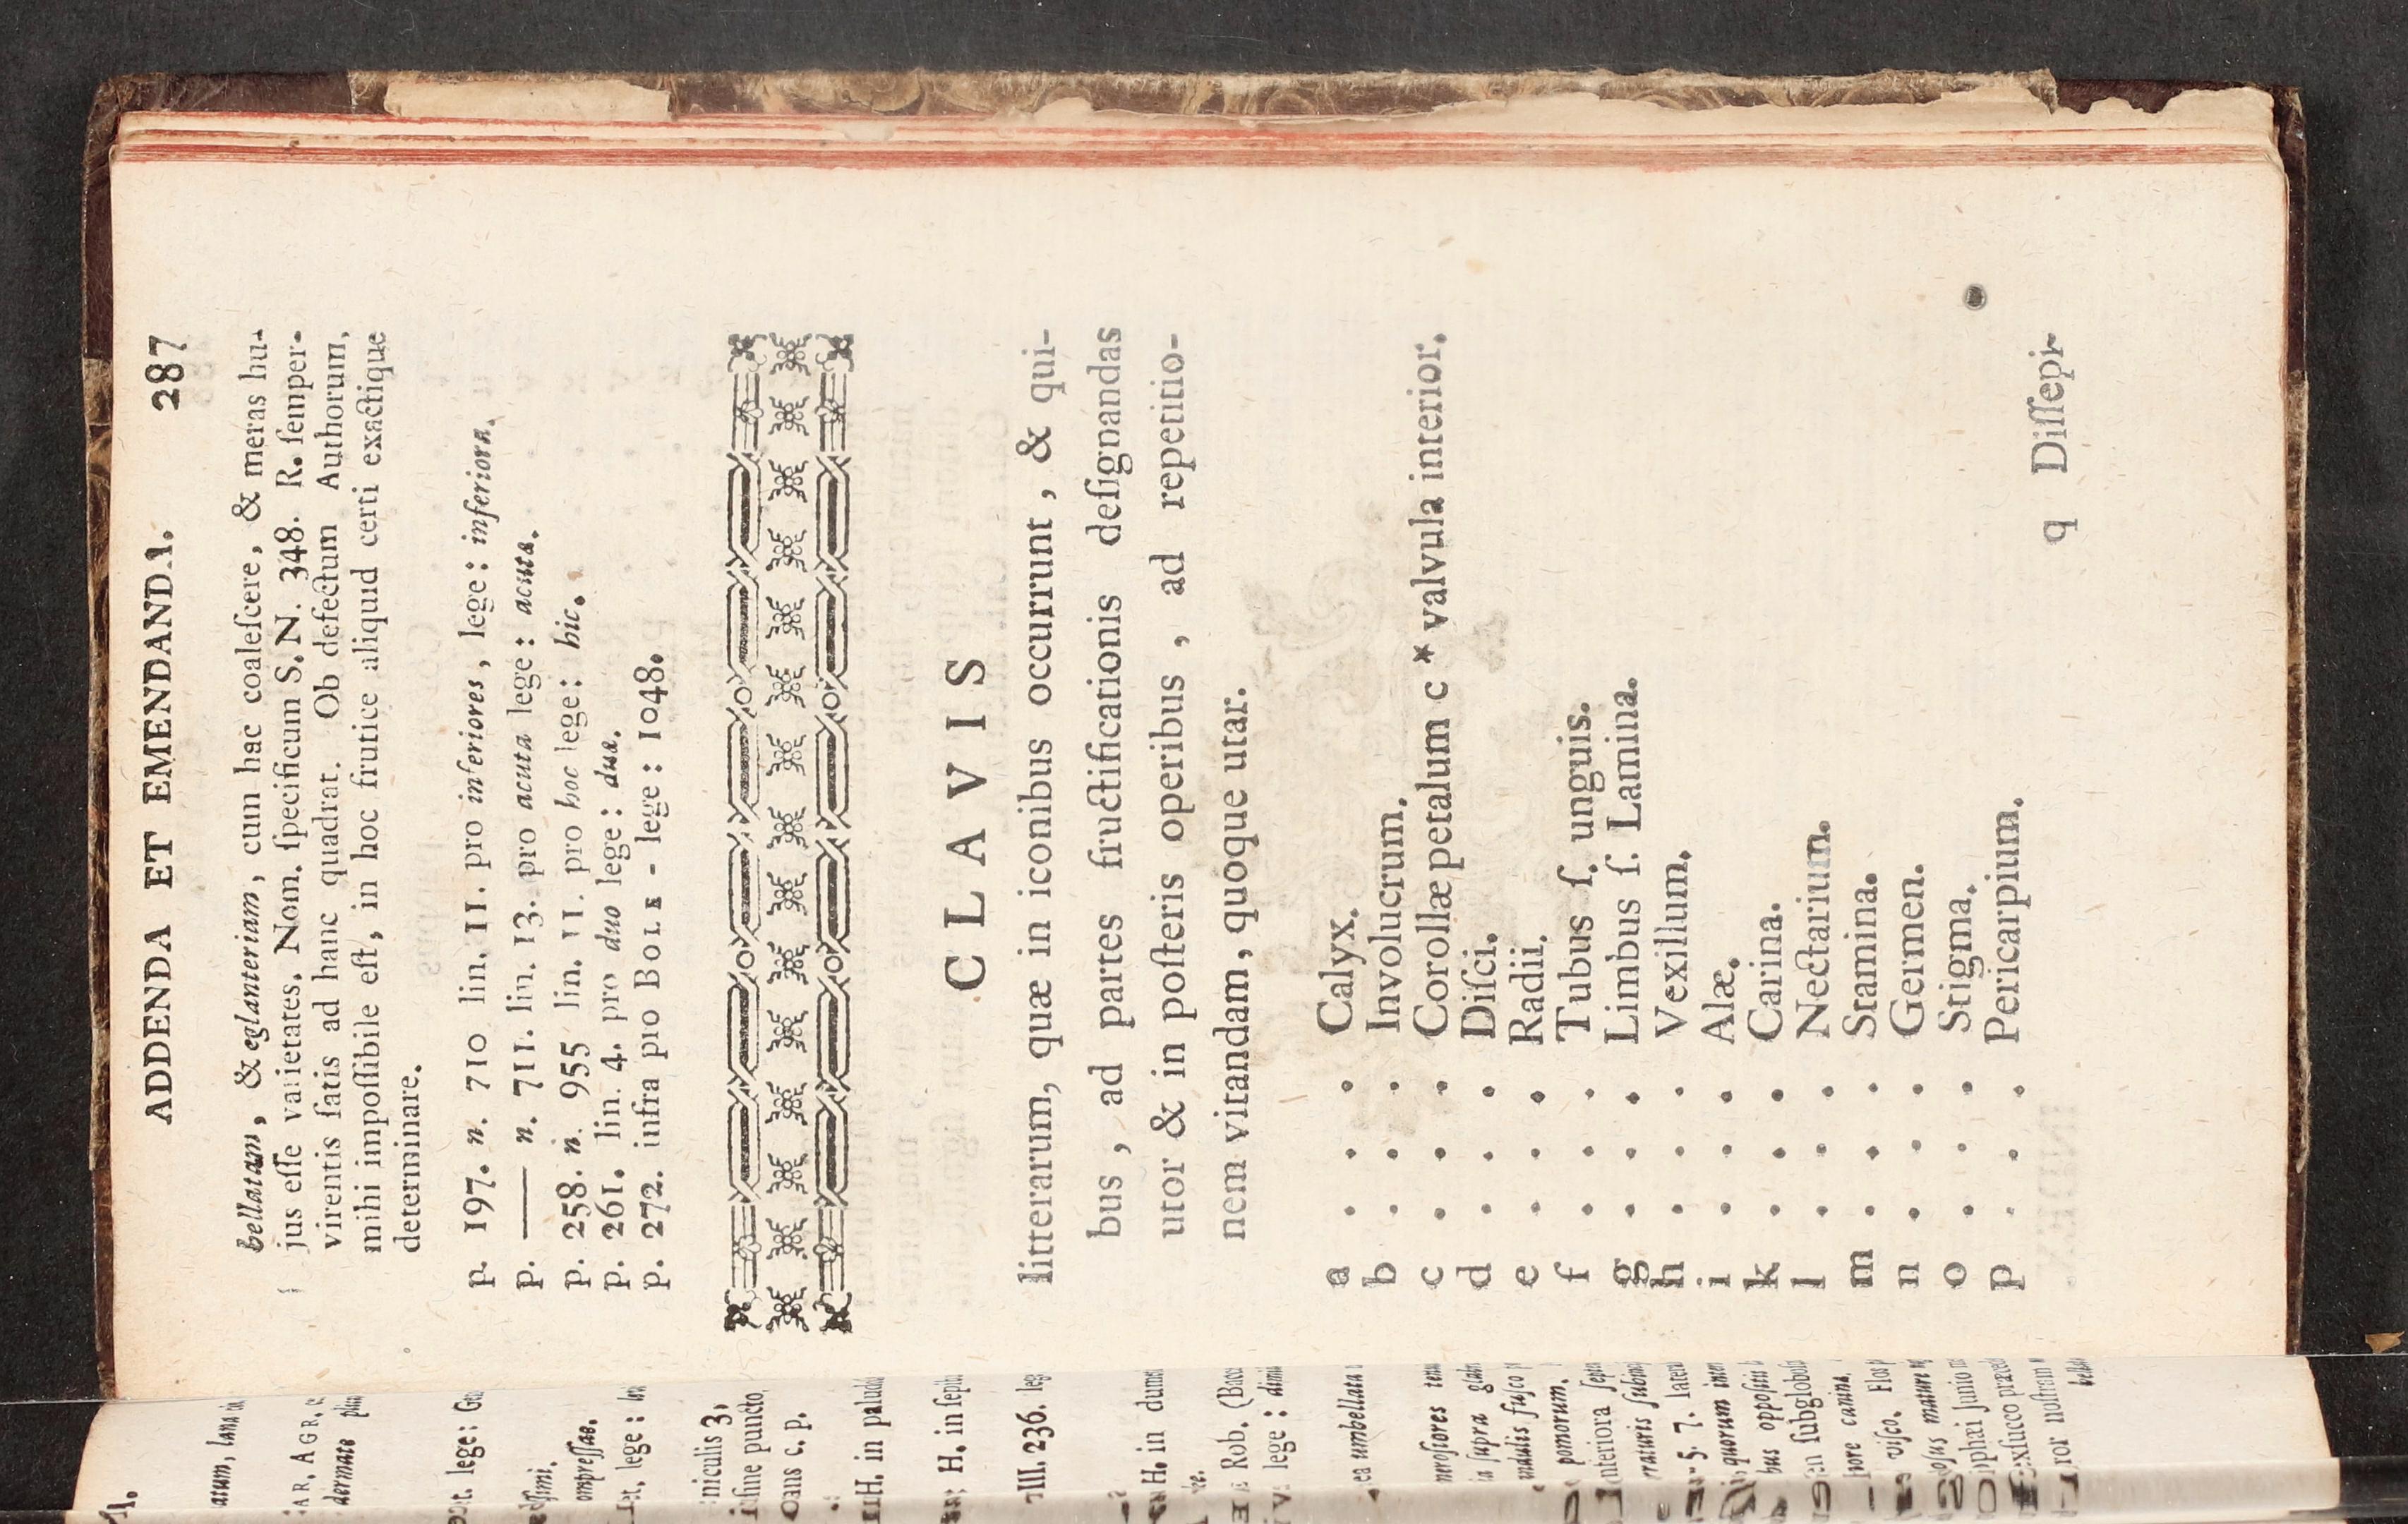 ADDENDA ET EMENDANDA. 287
bellatam, & eglanteriam, cum hac coaleſcere, & meras hu-
jus eſſe varietates. Nom. ſpecificum S. N. 348. R. ſemper-
virentis ſatis ad hanc quadrat. Ob defectum Authorum,
mihi impoſſibile eſt, in hoc frutice aliquid certi exactique
determinare.
p. 197. n. 710 lin. 11. pro inferiores, lege: inferiora.
p. —— n. 711. lin. 13. pro acuta lege: acuta.
p. 258. n. 955 lin. 11. pro hoc lege: hic.
p. 261. lin. 4. pro duo lege: duæ.
p. 272. infra pro BOLE - lege: 1048.
CLAVIS
litterarum, quæ in iconibus occurrunt, & qui-
bus, ad partes fructificationis deſignandas
utor & in poſteris operibus, ad repetitio-
nem vitandam, quoque utar.
a . . . Calyx.
b . . . Involucrum.
c . . . Corollæ petalum c * valvula interior.
d . . . Diſci.
e . . . Radii.
f . . . Tubus ſ. unguis.
g . . . Limbus ſ. Lamina.
h . . . Vexillum.
i . . . Alæ.
k . . . Carina.
l . . . Nectarium.
m . . . Stamina.
n . . . Germen.
o . . . Stigma.
p . . . Pericarpium.
q Diſſepi-
lege:
niculis 3,
puncto
c. p.
H. in
H. in ſepi
236.
H. in
Rob.
lege:
umbellata
ſupra
fuſco
pomorum.
5. 7.
quorum
oppoſiti
ſubgloboſ
viſco.
Junio